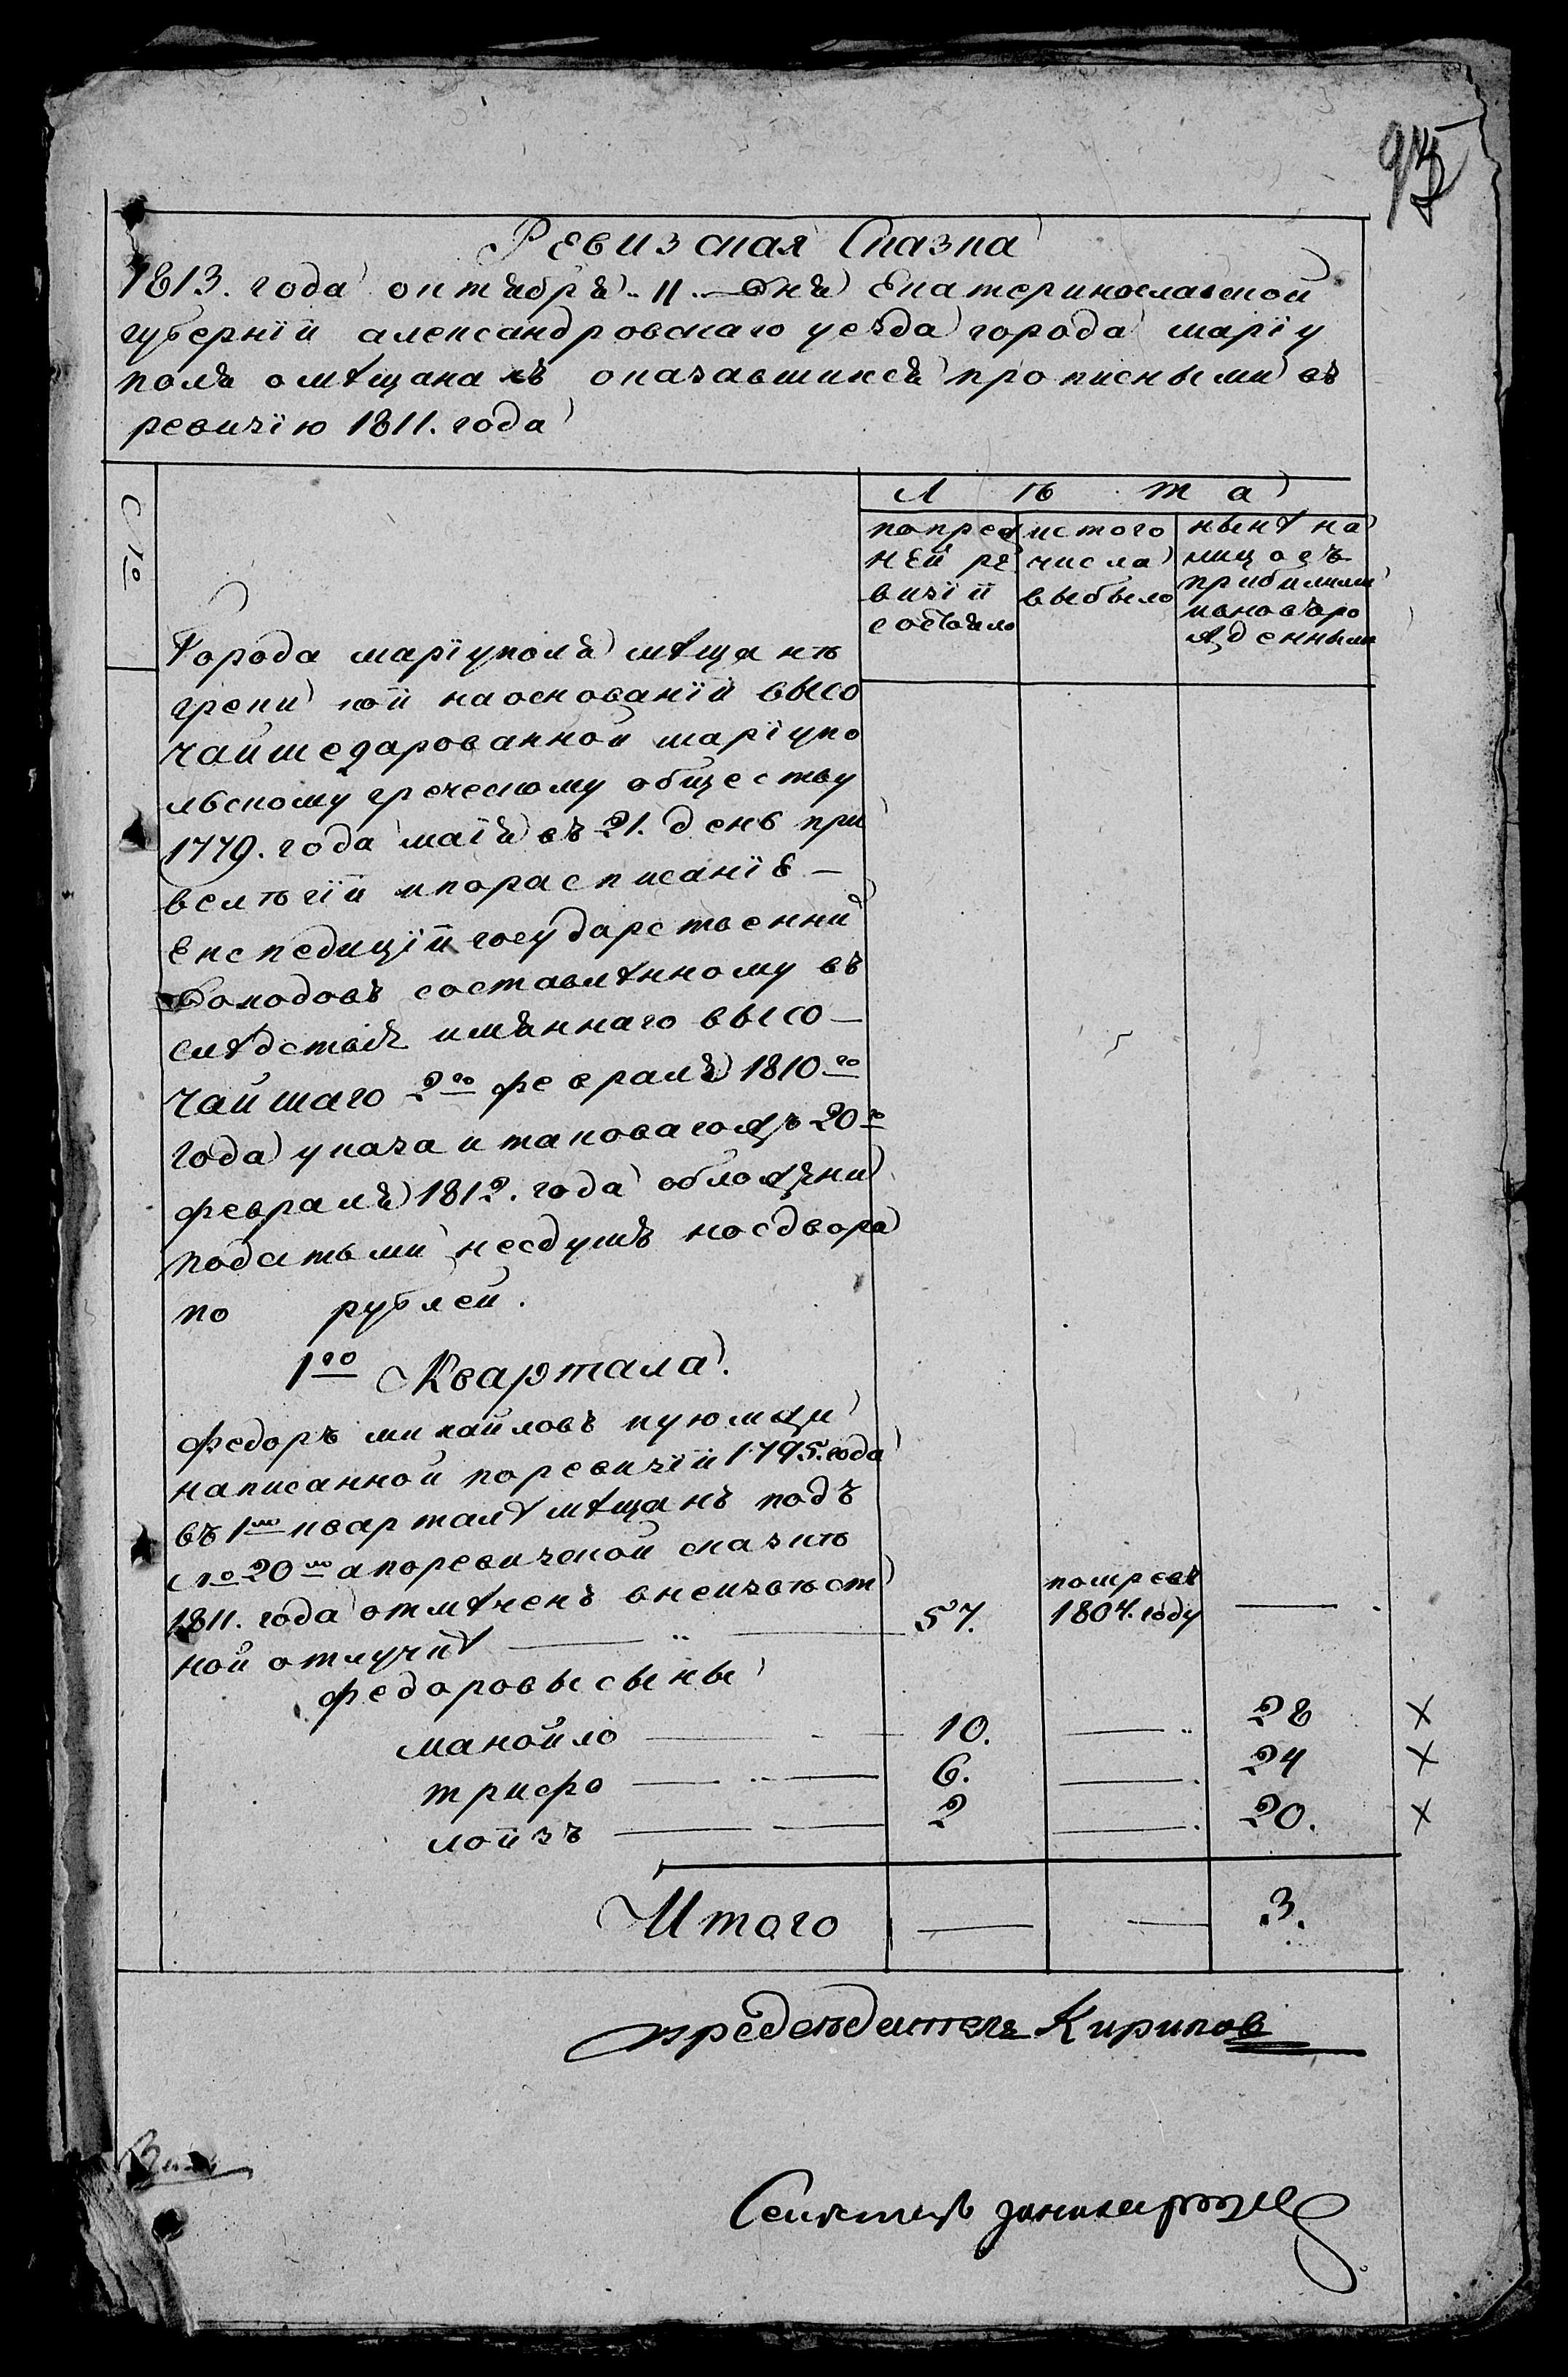 Ревизская Сказка
1813. года октября. 11. дня Екатеринославской
губернїи александровскаго уезда города марїу
поля о мѣщанахъ оказавшихся прописными въ
ревизїю 1811. года
№
Л ѣ т а
по пред
ней ре
визїи
состояло
ис того
числа
выбыло
нынѣ на
лицо съ
прибылыми
и новоро
жденными
Города марїуполя мѣщанѣ
греки кои на основанїи высо
чайше дарованной марїупо
льскому греческому обществу
1779. года маїя въ 21. день при
велѣгїи и по расписанїе
Експедицїи государственни
доходовъ составлѣнному въ
слѣдствїе имяннаго высо
чайшаго 2го февраля 1810го
года указа и таковагожъ 20го
февраля 1812. года обложени
податьми не с душъ но с двора
по рублей.
1го Квартала.
федоръ михайловъ куюмжи
написанной по ревизїи 1795. года
въ 1мъ кварталѣ мѣщанъ подъ
№ 20мъ а по ревизской сказкѣ
1811. года отмѣченъ в неизвѣст
ной отлучкѣ 57. помре въ 1807. году
федоровы сыны
манойло 10. 28 ×
трифо 6. 24 ×
лоизъ 2 20. ×
Итого 3.
председатель Кирипов